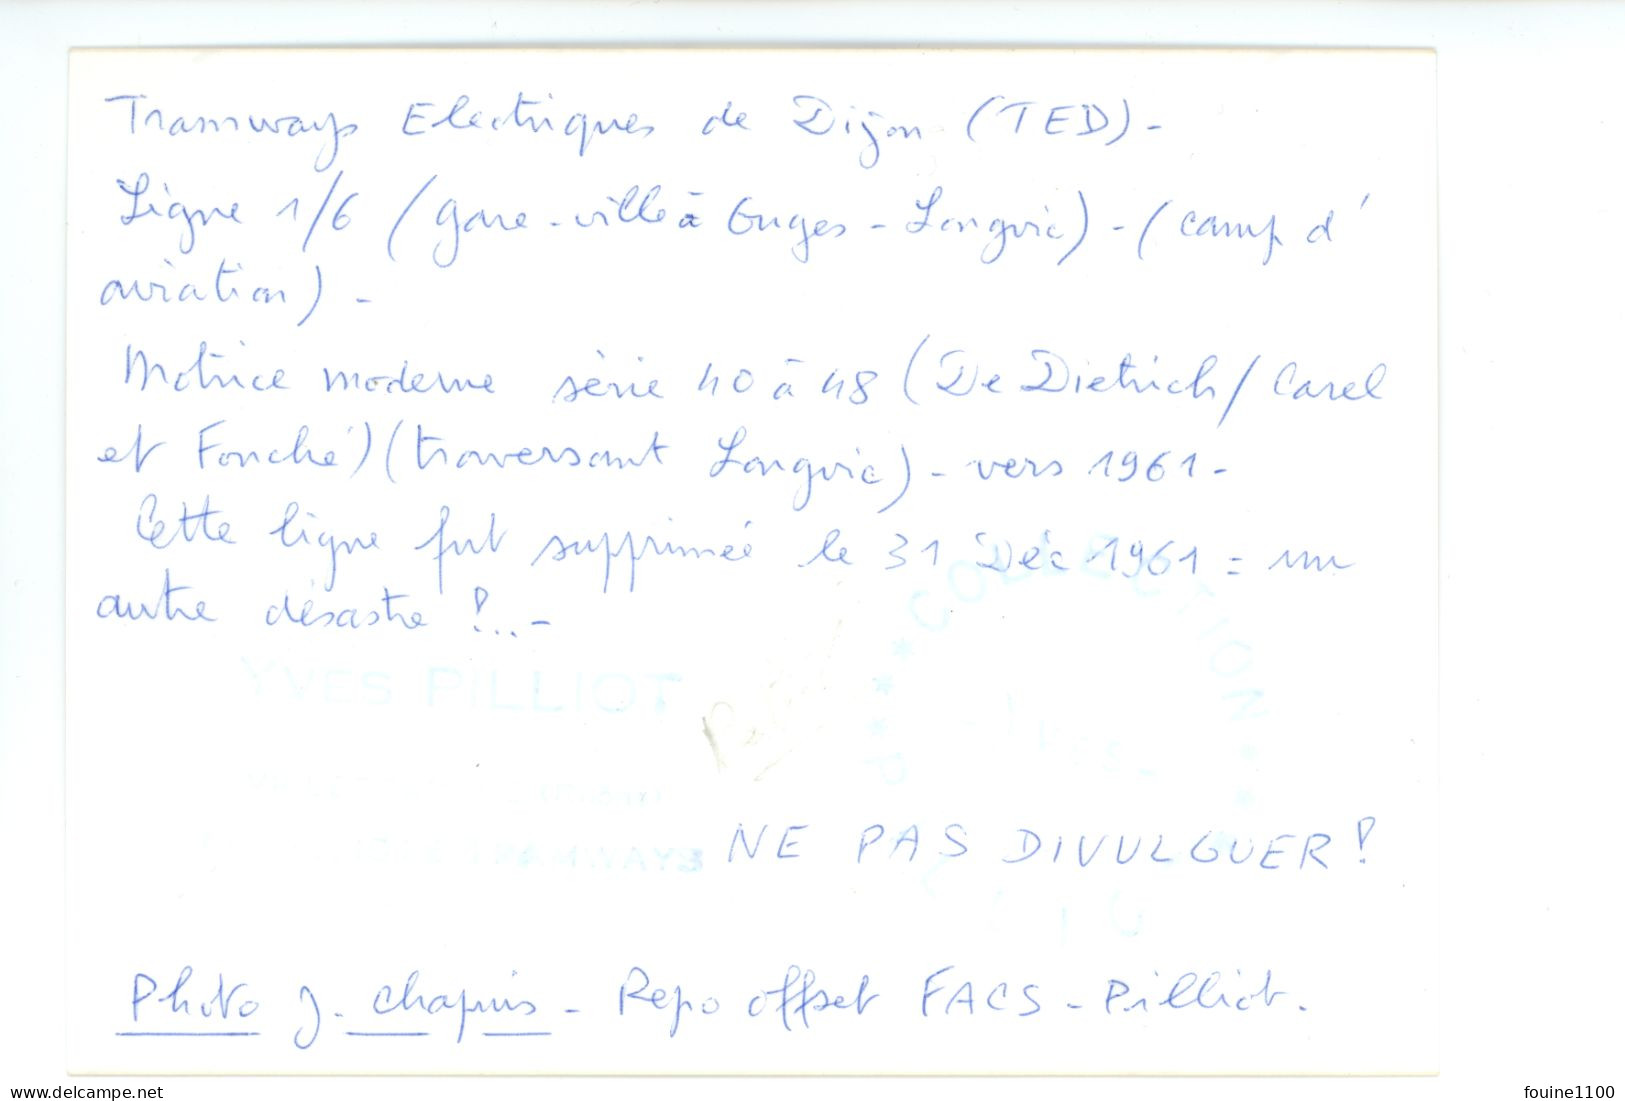 Tramways Electriques de Dijon (TED) -
Ligne 1/6 (gare-ville à Ouges - Longvic) - (camp d'
aviation) -
Motrice moderne série 40 à 48 (De Dietrich/Carel
et Fouché) (traversant Longvic) - vers 1961 -
Cette ligne fut supprimée le 31 Déc 1961 = un
autre désastre !.. -
COLLECTION
YVES PILLIOT
TRAMWAYS
NE PAS DIVULGUER !
Photo J. Chapuis - Repo offset FACS - Pilliot.
www.delcampe.net
fouine1100